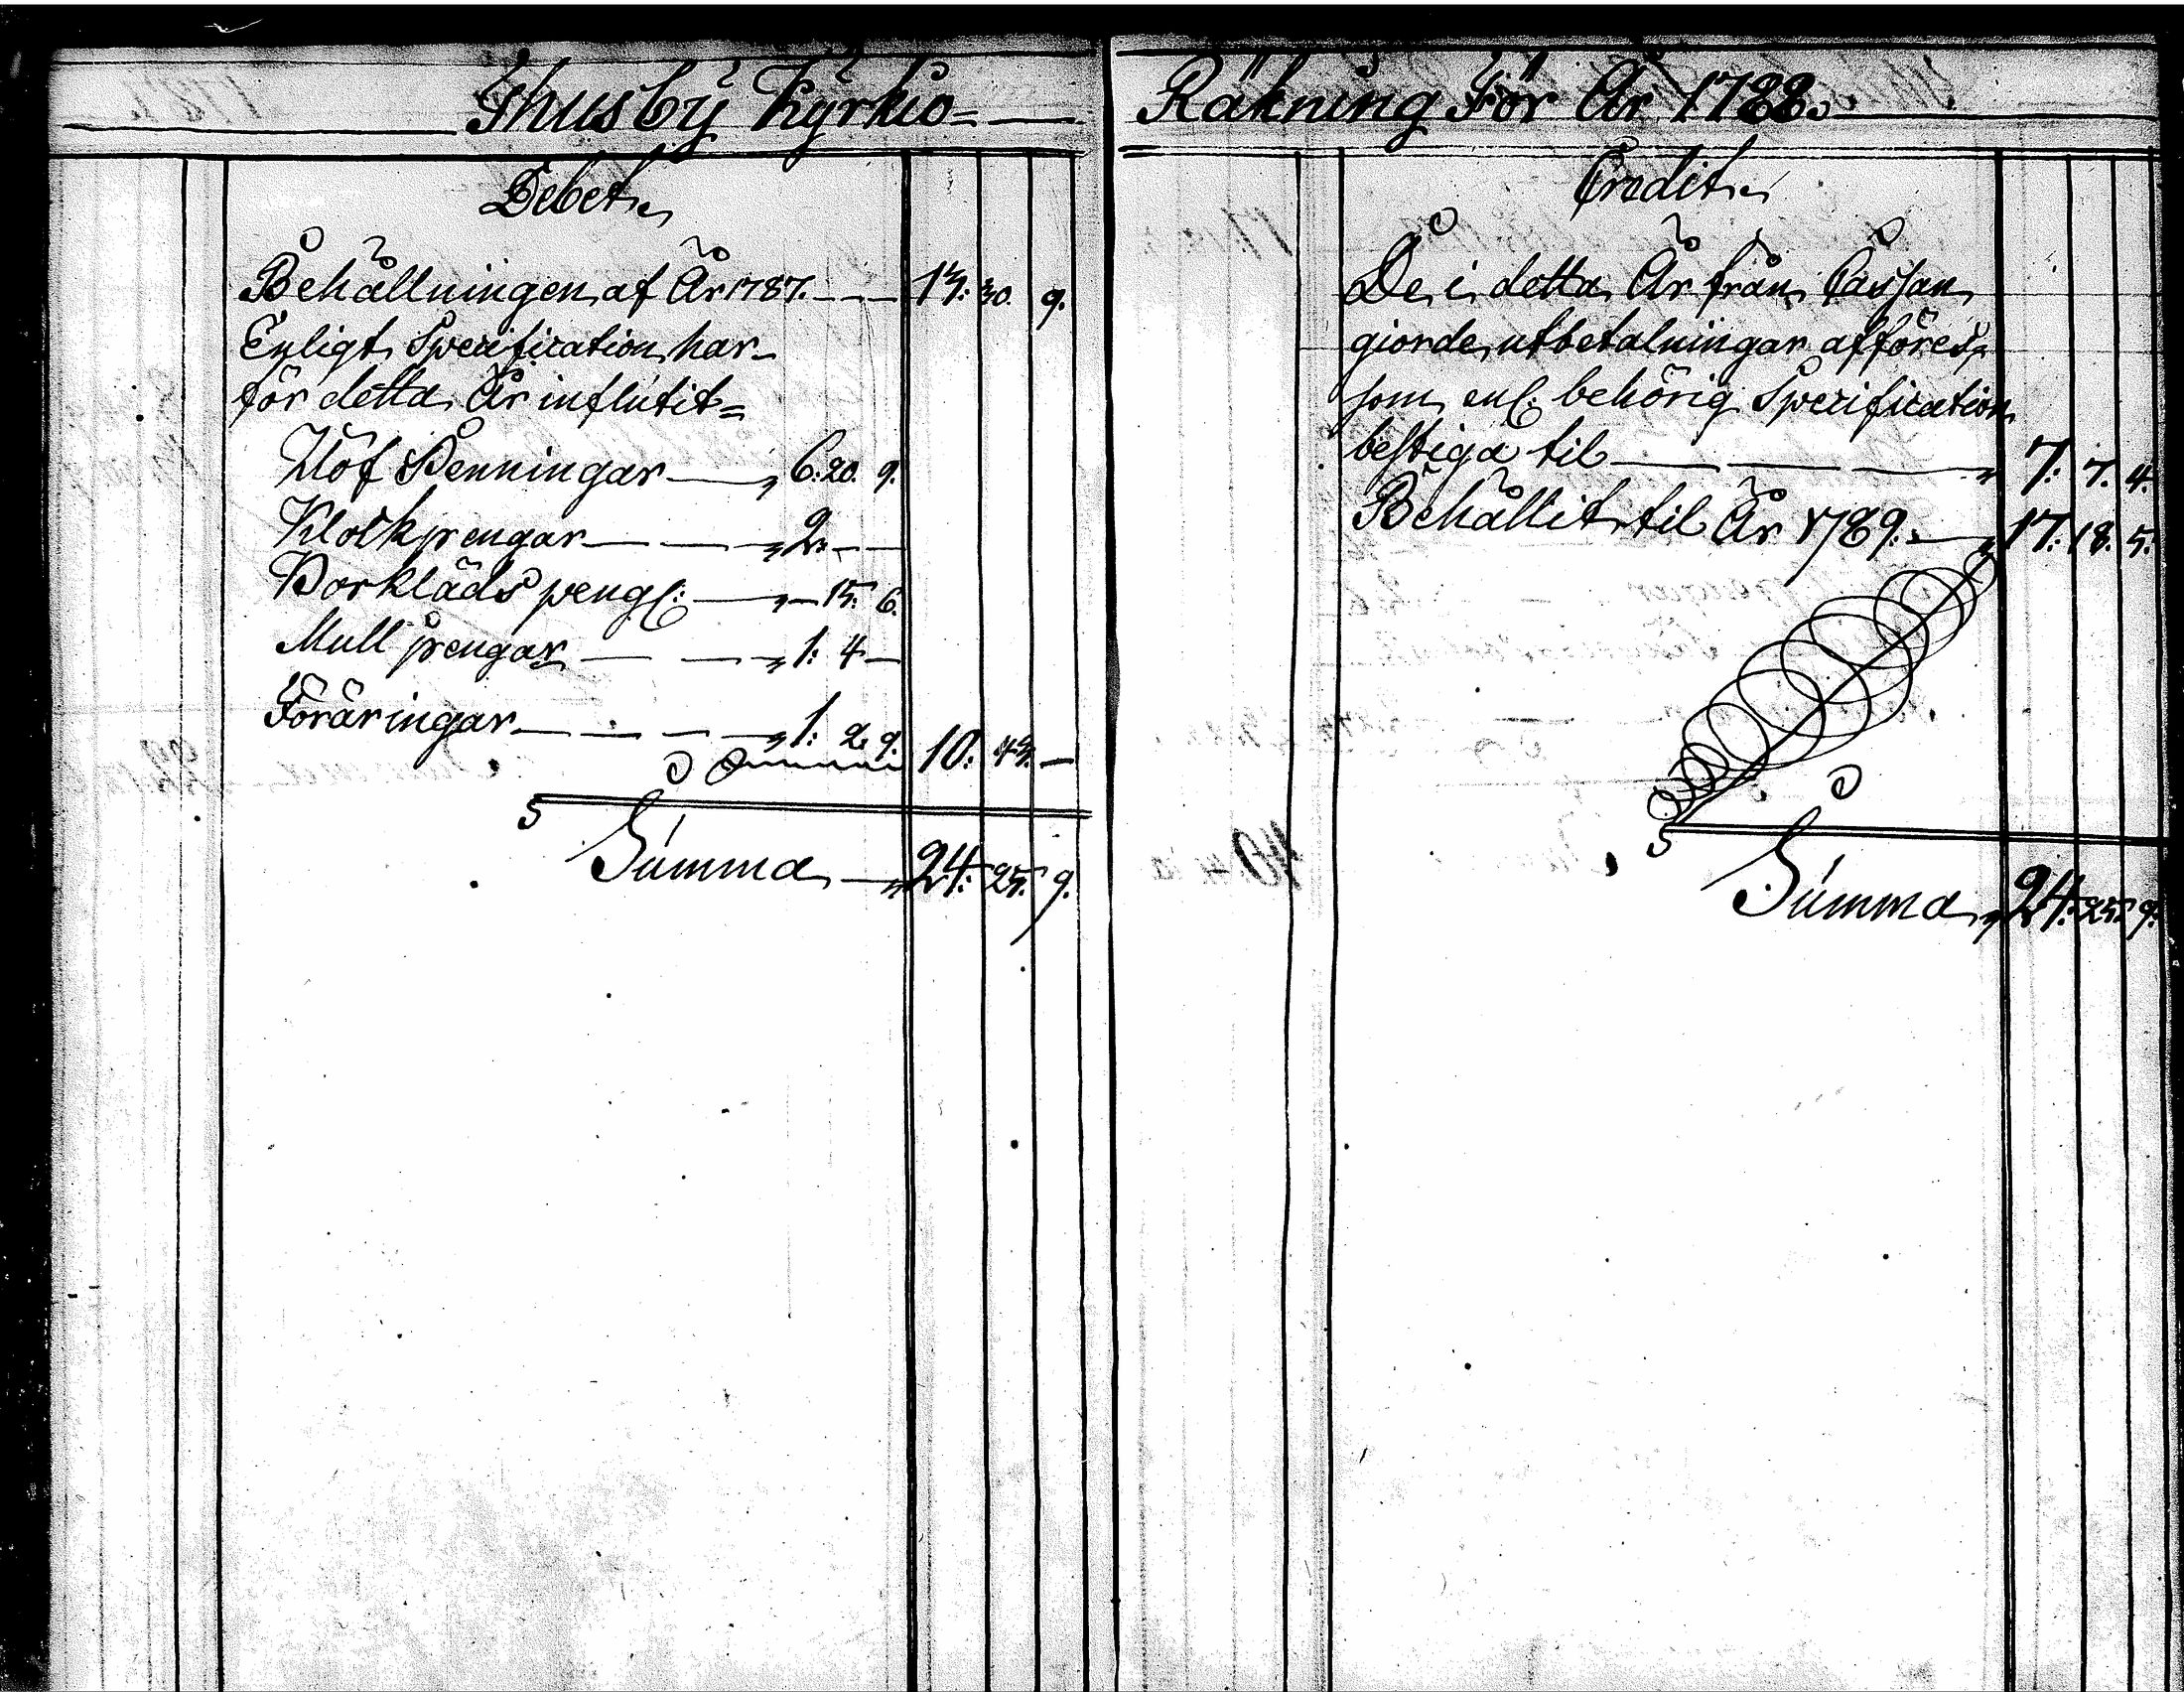 Ihusby Kyrkio=
Debet.
Behållningen af År 1787. — 13: 30. 9.
Enligt Specification har
för detta År influtit=
Håf Penningar — 6: 20. 9.
Klockpengar — 2: — —
Borkläds pengl: — 15: 6.
Mull pengar — 1: 4 —
Föräringar — 1: 2. 9. 10: 43. —
Summa — 24: 25. 9.
Räkning För År 1788.
Credit.
De i detta År från Cassan
giorde utbetalningar afföres,
som enl: behörig Specification
bestiga til — 7: 7. 4.
Behållit til År 1789. — 17: 18. 5.
Summa 24: 25. 9.